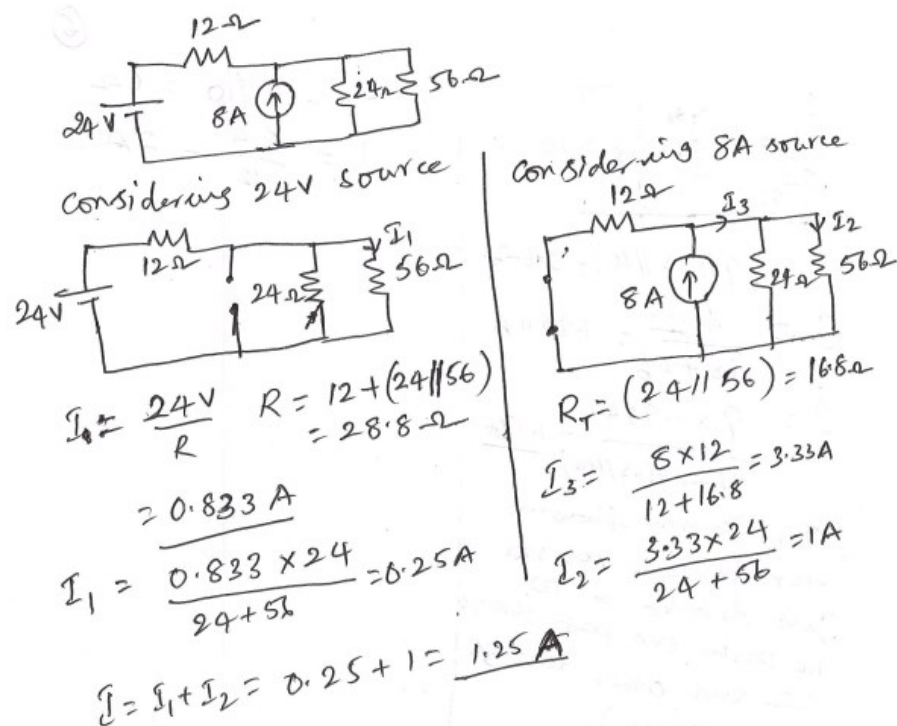 12Ω
24V
8A
24Ω
56Ω
Considering 24V source
12Ω
24V
24Ω
I₁
56Ω
I = 24V / R R = 12 + (24||56)
= 28.8 Ω
= 0.833 A
I₁ = 0.833 × 24 / 24 + 56 = 0.25A
Considering 8A source
12Ω
I₃
I₂
8A
24Ω
56Ω
R_T = (24 || 56) = 16.8Ω
I₃ = 8×12 / 12+16.8 = 3.33A
I₂ = 3.33×24 / 24+56 = 1A
I = I₁ + I₂ = 0.25 + 1 = 1.25 A